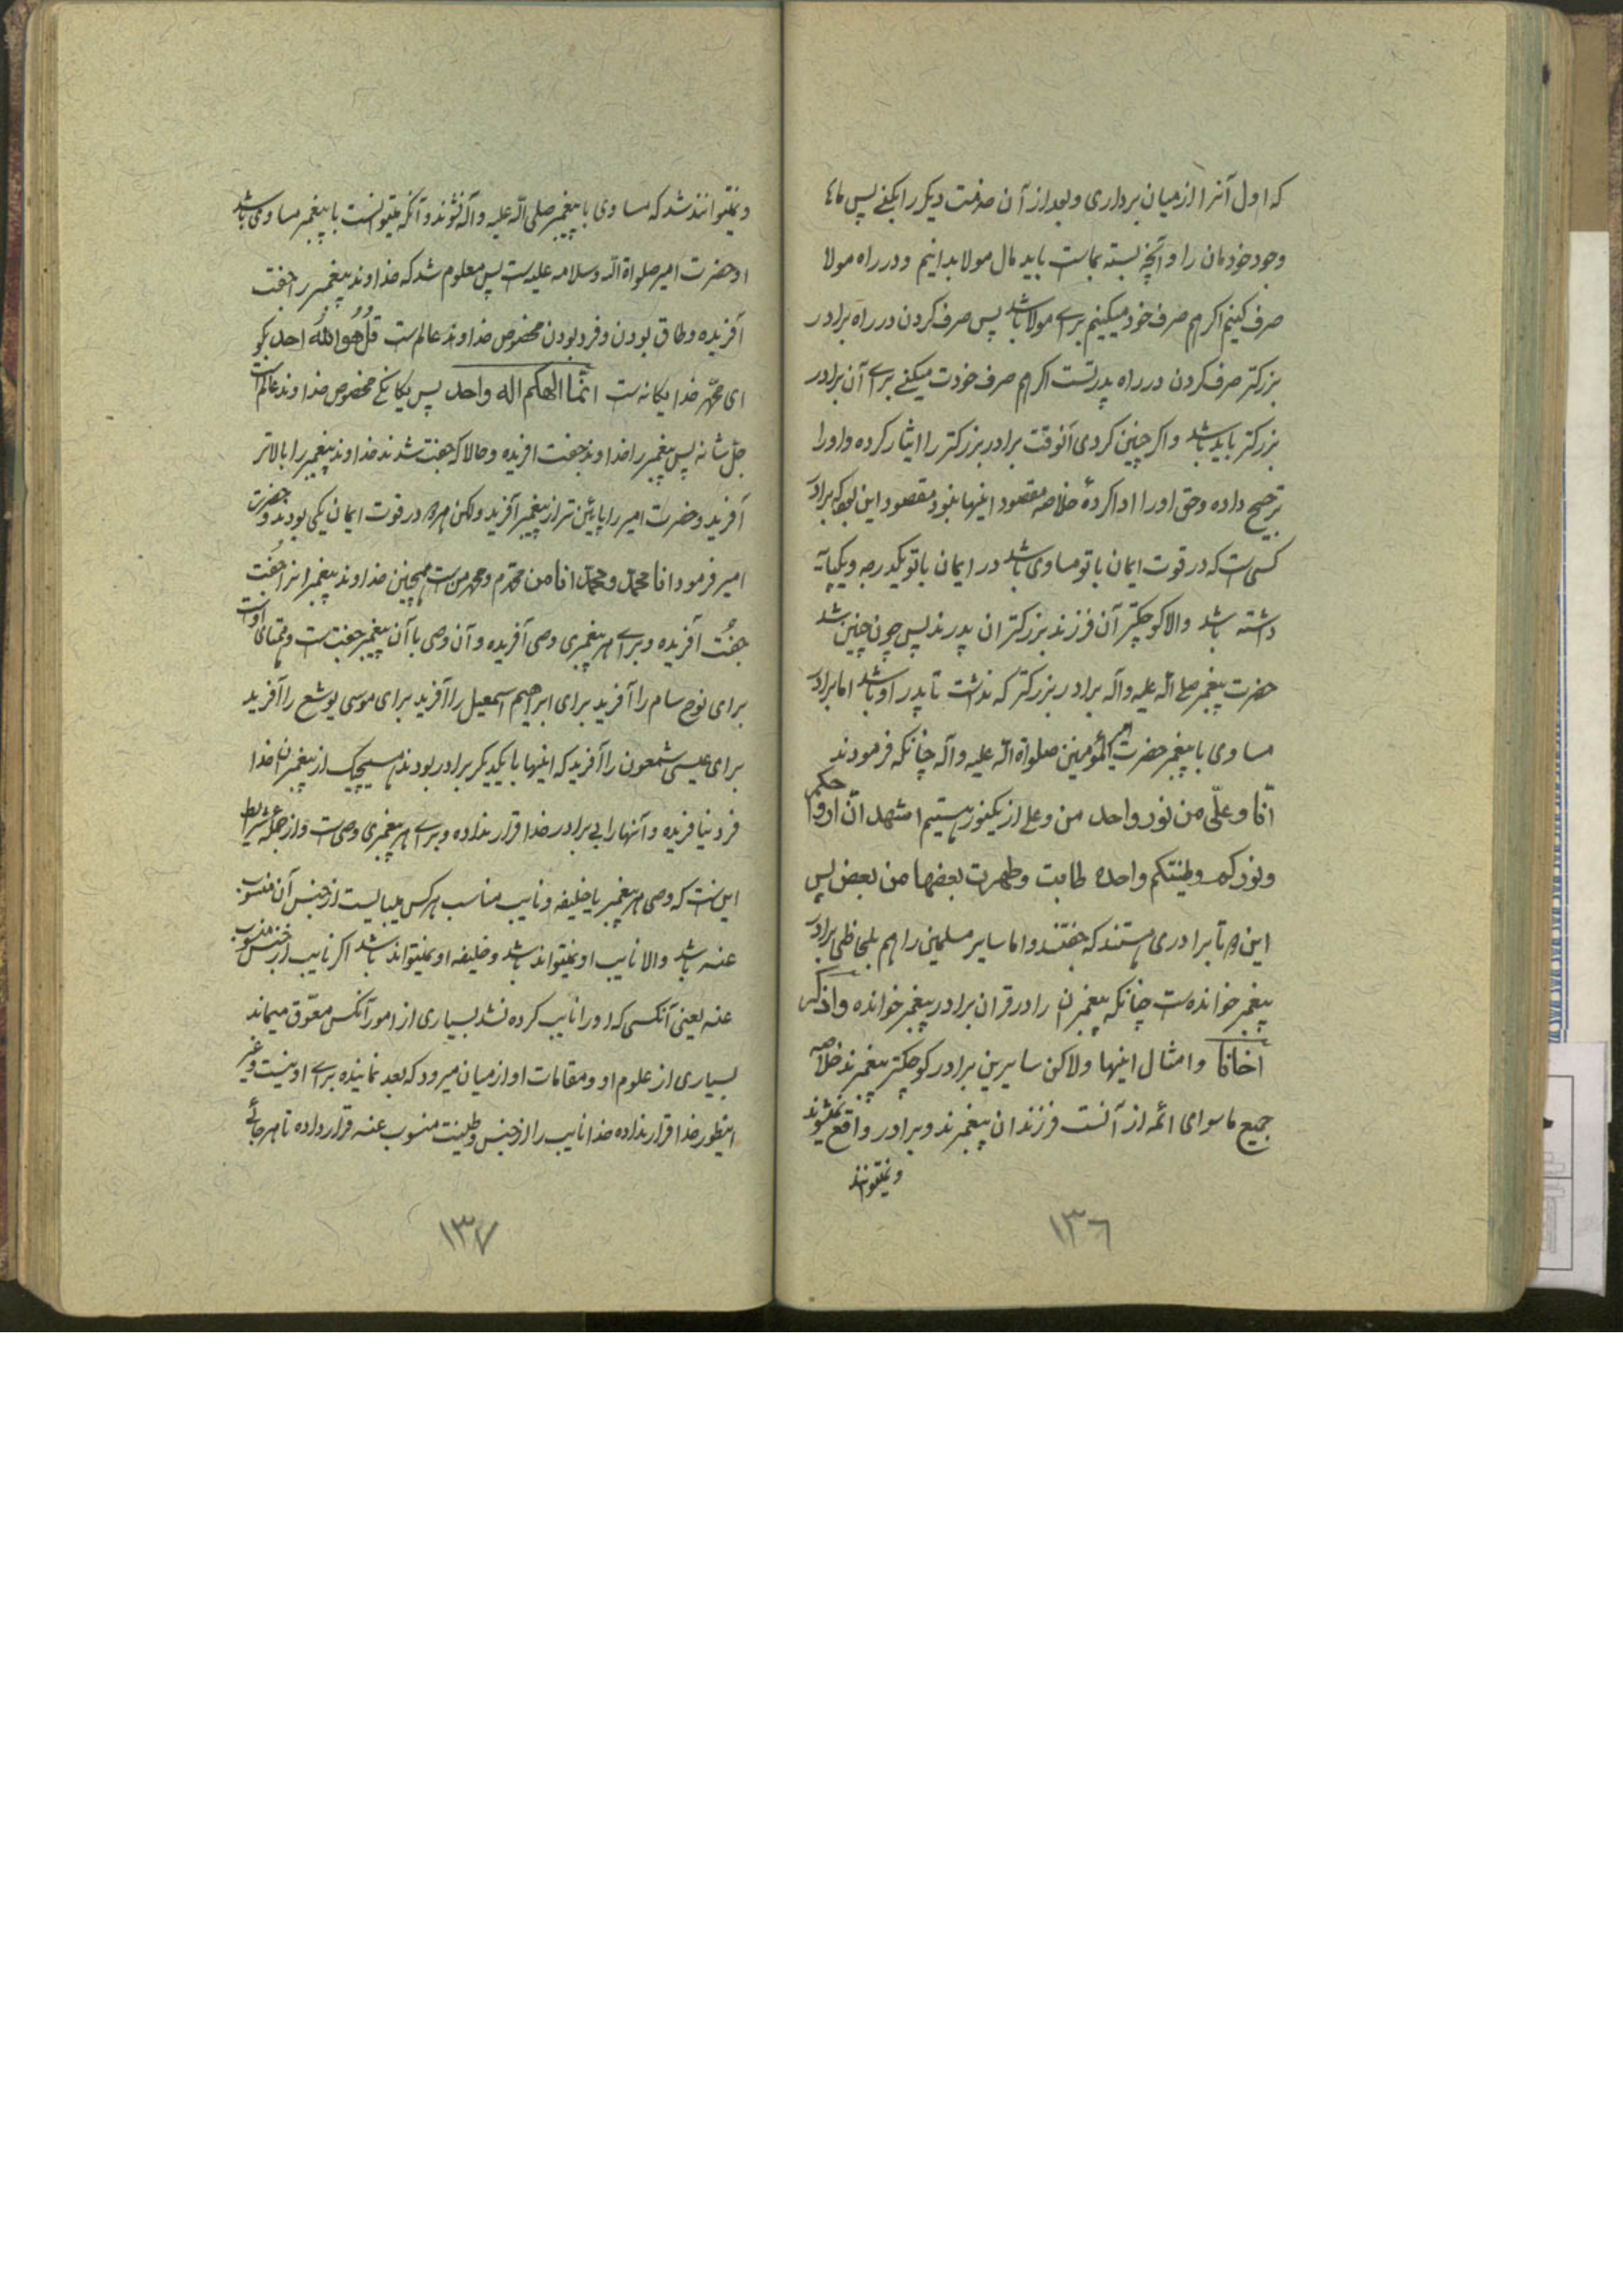 که اول آنرا از میان برداری و بعد از آن خدمت دیگر را بکنی پس ماها
وجود خودمان را و آنچه بسته بماست باید مال مولا بدانیم و در راه مولا
صرف کنیم اگر هم صرف خود میکنیم برای مولا باشد پس صرف کردن در راه برادر
بزرگتر صرف کردن در راه پدر تست اگر هم صرف خودت میکنی برای آن برادر
بزرگتر باید باشد و اگر چنین کردی آنوقت برادر بزرگتر را ایثار کرده و او را
ترجیح داده و حق او را ادا کردهٔ خلاصه مقصود اینها نبود مقصود این بود که برادر
کسی است که در قوت ایمان با تو مساوی باشد در ایمان با تو یکدرجه و یکپایه
داشته باشد والا کوچکتر آن فرزند بزرگتر ان پدرند پس چون چنین شد
حضرت پیغمبر صلی الله علیه وآله برادر بزرگتر که نداشت تا پدر او باشد اما برادر
مساوی با پیغمبر حضرت امیرالمؤمنین صلواة الله علیه وآله چنانکه فرمودند
انا و علی من نور واحد من و علی از یکنور هستیم اشهد ان ارواحکم
و نورکم وطینتکم واحده طابت وطهرت بعضها من بعض پس
این دو تا برادری هستند که جفتند و اما سایر مسلمین را هم بلحاظی برادر
پیغمبر خوانده است چنانکه پیغمبران را در قران برادر پیغمبر خوانده واذکر
اخانا و امثال اینها ولاکن سایرین برادر کوچکتر پیغمبرند خلاصه
جمیع ماسوای ائمه از آنست فرزندان پیغمبرند و برادر واقع نمیشوند
و نمیتوانند
۱۳۶
و نمیتوانند شد که مساوی با پیغمبر صلی الله علیه وآله شوند و آنکه میتوانست با پیغمبر مساوی باشد
او حضرت امیر صلواة الله وسلامه علیه است پس معلوم شد که خداوند پیغمبر را جفت
آفریده و طاق بودن و فرد بودن مخصوص خداوند عالم است قل هو الله احد بگو
ای محمد خدا یگانه است انما الهکم اله واحد پس یگانگی مخصوص خداوند عالم است
جل شانه پس پیغمبر را خداوند جفت افریده و حالا که جفت شدند خداوند پیغمبر را بالاتر
آفرید و حضرت امیر را پائین تر از پیغمبر آفرید ولکن هر دو در قوت ایمان یکی بودند و حضرت
امیر فرمود انا محمد و محمد انا من محمدم و محمد من است همچنین خداوند پیغمبران را جفت
جفت آفریده و برای هر پیغمبری وصی آفریده و آن وصی با آن پیغمبر جفت است و همتای اوست
برای نوح سام را آفرید برای ابراهیم اسمعیل را آفرید برای موسی یوشع را آفرید
برای عیسی شمعون را آفرید که اینها با یکدیگر برادر بودند هیچیک از پیغمبران خدا
فرد نیافریده و آنها را بی برادر خدا قرار نداده و برای هر پیغمبری وصی است و از جمله شرایط
این است که وصی هر پیغمبر یا خلیفه و نایب مناسب هر کس میبایست از جنس آن منسوب
عنه باشد والا نایب او نمیتواند باشد و خلیفه او نمیتواند باشد اگر نایب از جنس منسوب
عنه یعنی آنکسی که او را نایب کرده نشد بسیاری از امور آنکس معوق میماند
بسیاری از علوم او و مقامات او از میان میرود که بعد نماینده برای او نیست و غیر
اینطور خدا قرار نداده خدا نایب را از جنس و طینت منسوب عنه قرار داده تا هر جائی
۱۳۷